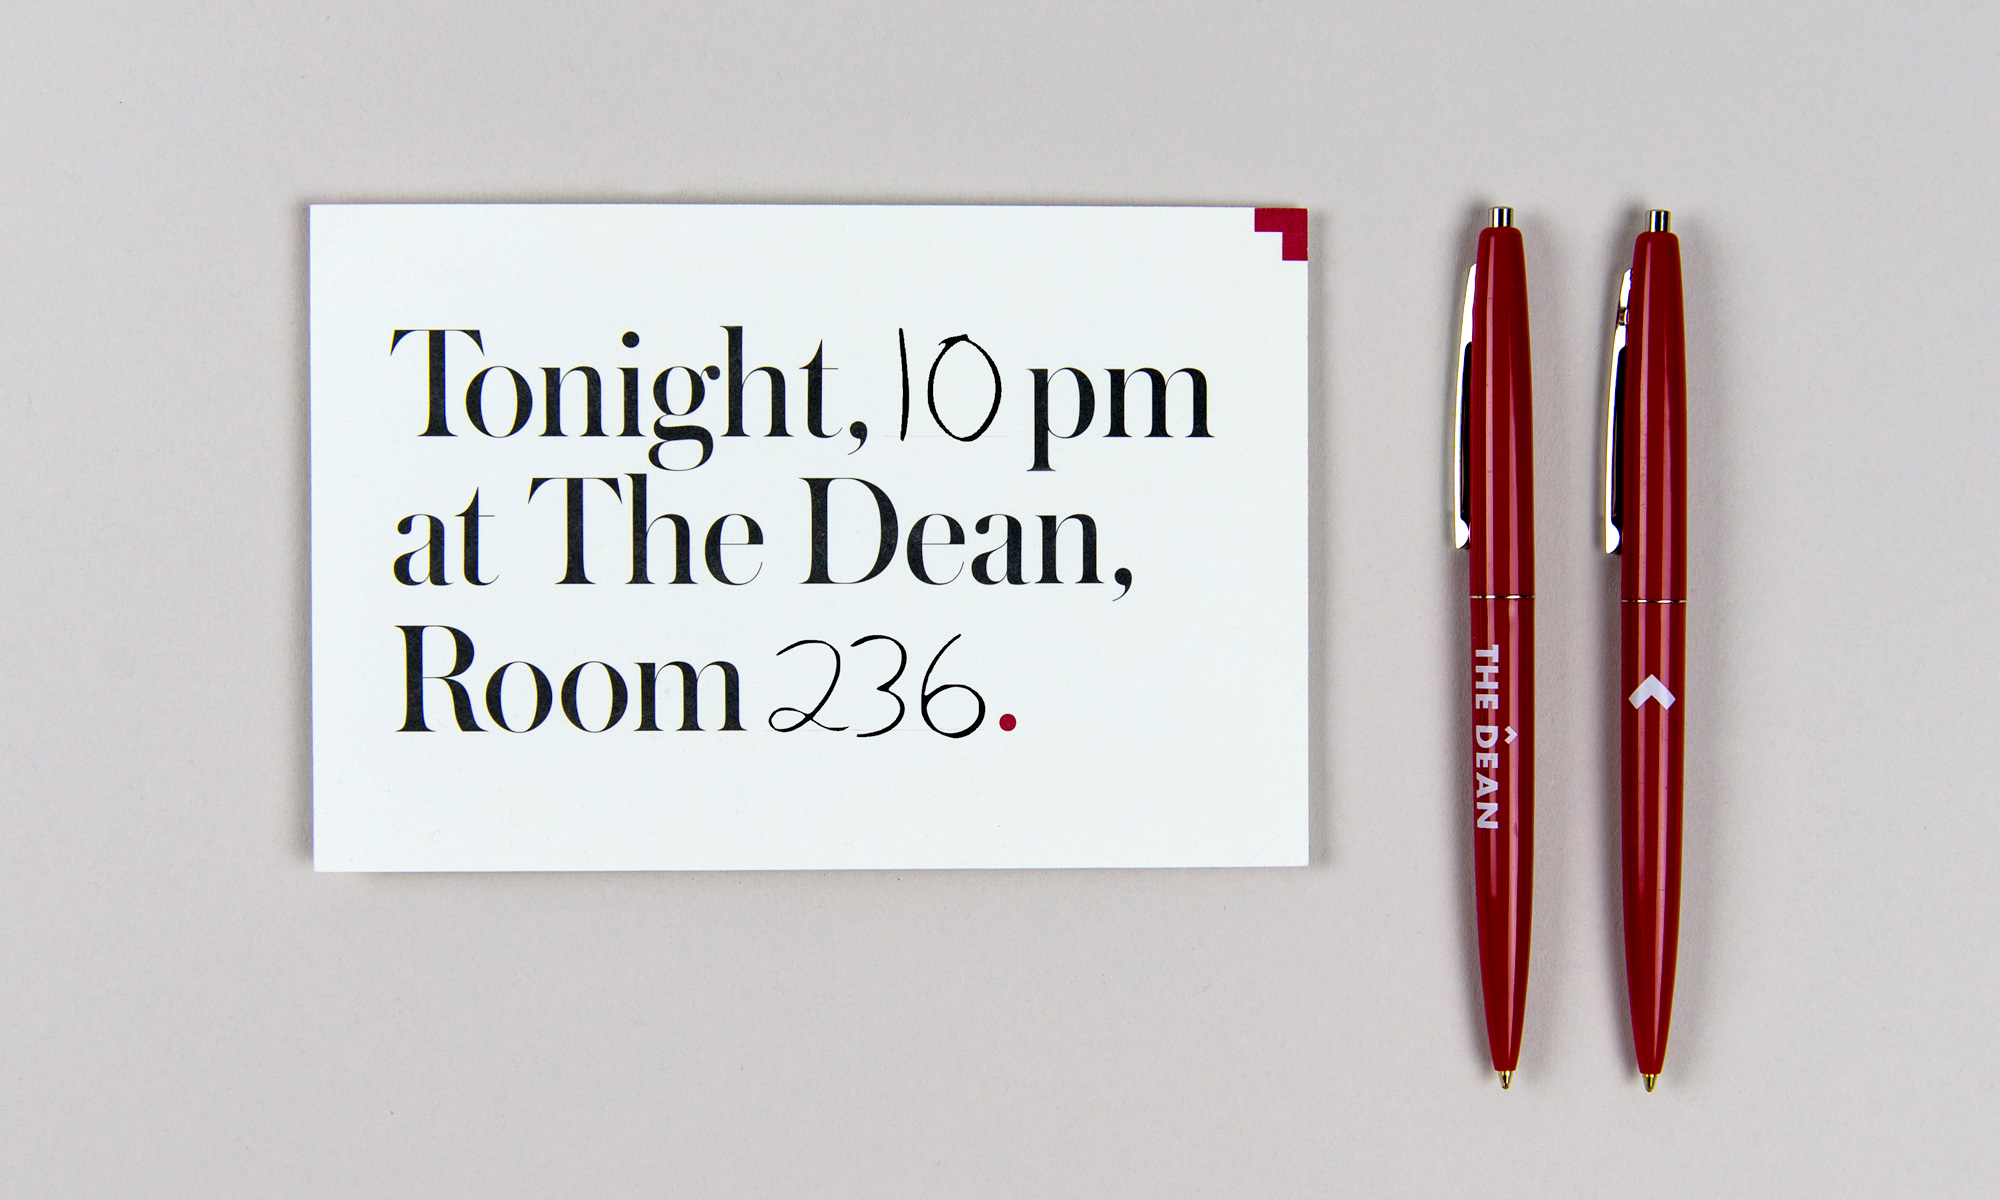 Tonight, 10 pm
at The Dean,
Room 236.
THE DEAN